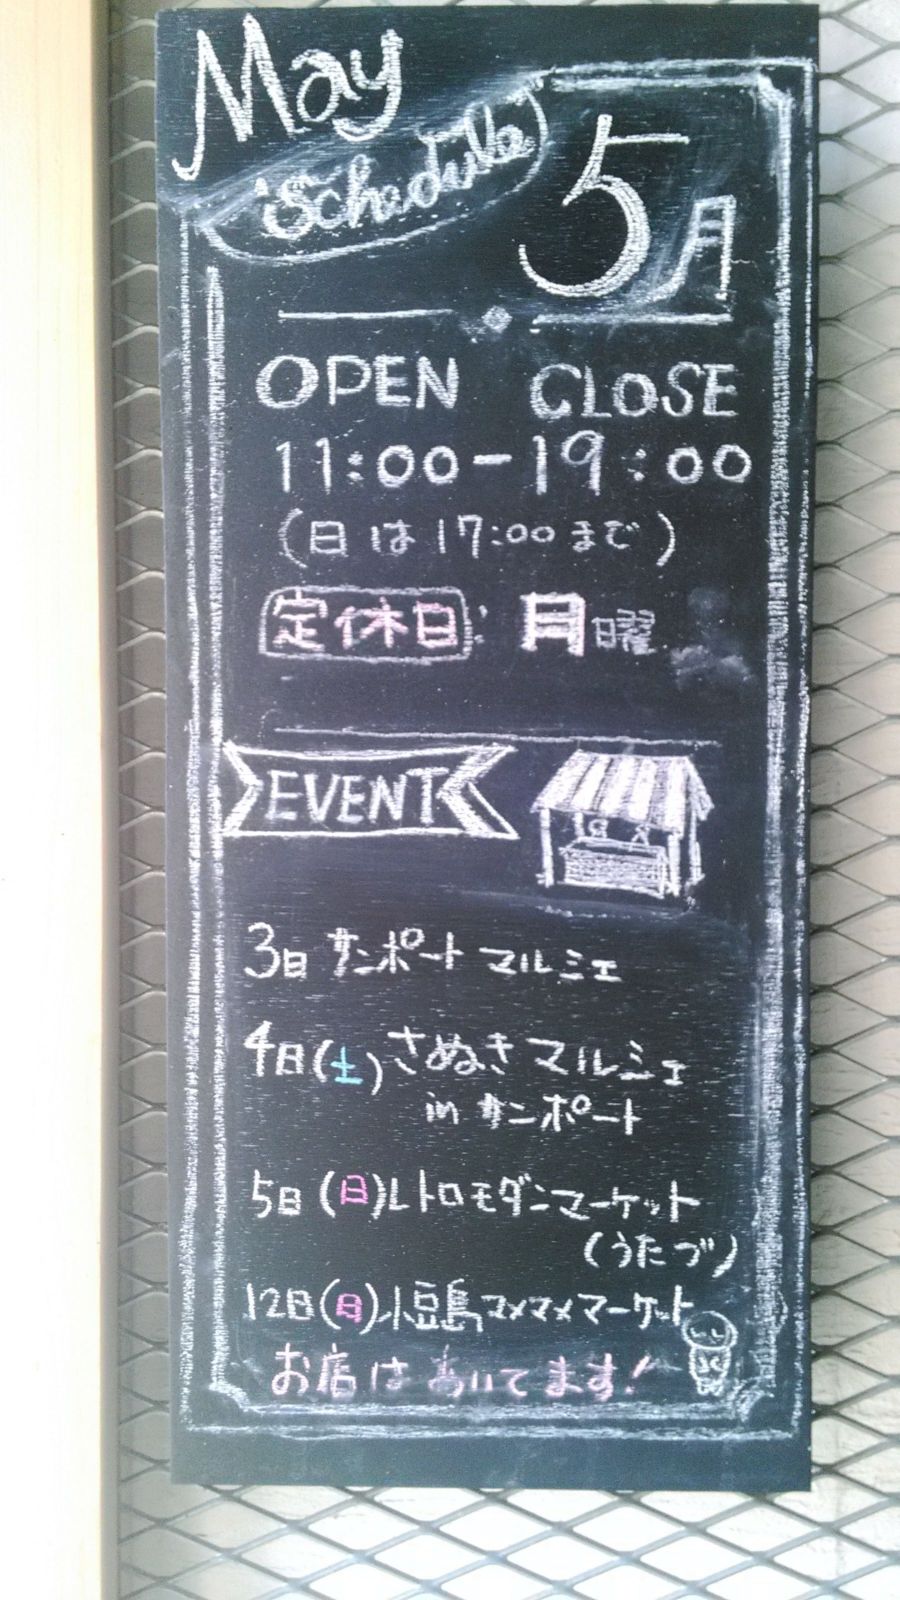 May
Schedule
5月
OPEN CLOSE
11:00-19:00
(日は17:00まで)
定休日: 月曜
EVENT
3日 サンポート マルシェ
4日(土)さぬきマルシェ
in サンポート
5日(日)レトロモダンマーケット
(うたづ)
12日(日)小豆島マメマメマーケット
お店はあいてます!